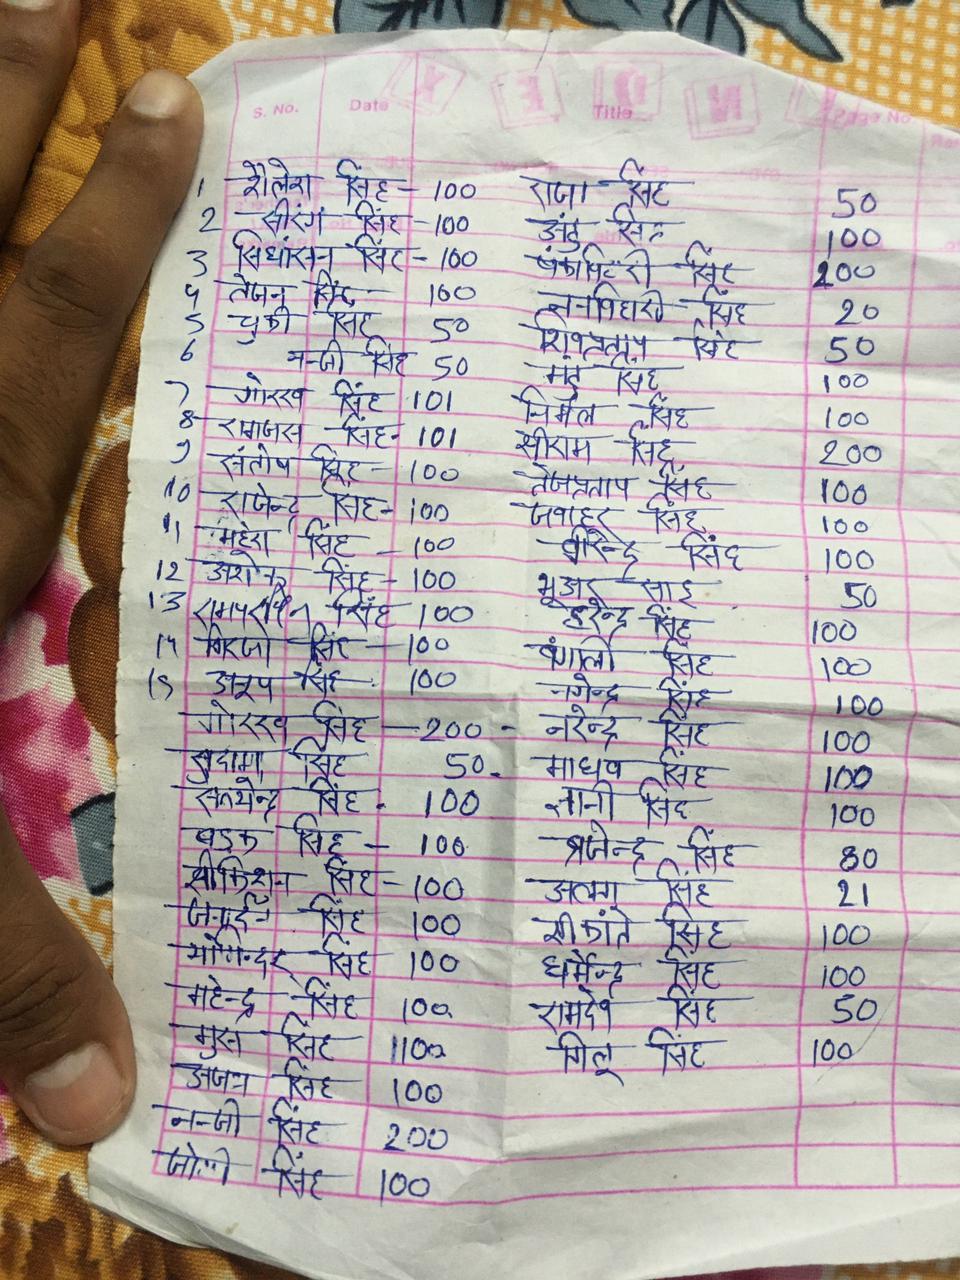 S. No. Date Title
1 शैलेश सिंह - 100
2 सीरंग सिंह - 100
3 सिधांसन सिंह - 100
4 तेजन सिंह 100
5 चुकी सिंह 50
6 नन्जी सिंह 50
7 गोरख सिंह 101
8 रामजस सिंह - 101
9 संतोष सिंह - 100
10 राजेन्द्र सिंह - 100
11 महेश सिंह - 100
12 अशोक सिंह - 100
13 सिंह 100
14 गिरजा सिंह - 100
15 अनूप सिंह - 100
गोरख सिंह - 200 -
सुदामा सिंह 50.
सत्येन्द्र सिंह . 100
बडक सिंह - 100
श्रीकिशन सिंह - 100
जनार्दन सिंह 100
योगिन्दर सिंह 100
महेन्द्र सिंह 100
मुस सिंह 1100
अजय सिंह 100
नन्जी सिंह 200
सिंह 100
राजा सिंह 50
अंहु सिंह 100
सिंह 200
सिंह 20
शिवप्रताप सिंह 50
मंहु सिंह 100
निर्मल सिंह 100
सीराम सिंह 200
तेजप्रताप सिंह 100
जवाहर सिंह 100
वीरेन्द्र सिंह 100
भूअर साह 50
हरेन्द्र सिंह 100
बंगाली सिंह 100
नगेन्द्र सिंह 100
नरेन्द्र सिंह 100
माधव सिंह 100
ज्ञानी सिंह 100
ब्रजेन्द्र सिंह 80
अलगु सिंह 21
श्रीकांत सिंह 100
धर्मेन्द्र सिंह 100
रामदेव सिंह 50
गिलू सिंह 100